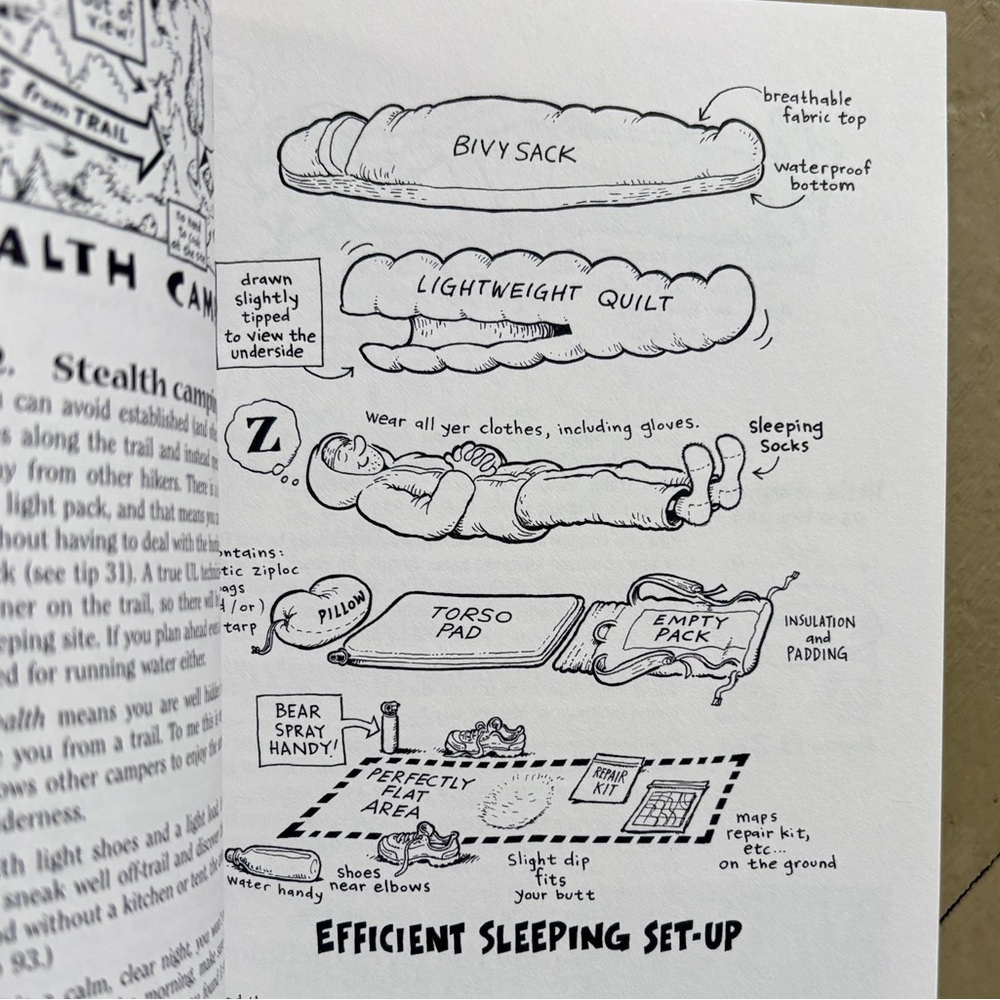 OUT OF
VIEW!
from TRAIL
ALTH CAM
2. Stealth campin
can avoid established (and
s along the trail and instead
y from other hikers. There is
light pack, and that means you
hout having to deal with the
k (see tip 31). A true UL
ner on the trail, so there will
eping site. If you plan ahead
d for running water either.
alth means you are well
you from a trail. To me this is
ows other campers to enjoy the
derness.
th light shoes and a light
sneak well off-trail and discover
d without a kitchen or tent, the
93.)
a calm, clear night, you
morning, make
BIVY SACK
breathable
fabric top
waterproof
bottom
drawn
slightly
tipped
to view the
underside
LIGHTWEIGHT QUILT
Z
Wear all yer clothes, including gloves.
Sleeping
Socks
ontains:
tic ziploc
ags
d/or)
tarp
PILLOW
TORSO
PAD
EMPTY
PACK
INSULATION
and
PADDING
BEAR
SPRAY
HANDY!
PERFECTLY
FLAT
AREA
REPAIR
KIT
maps
repair kit,
etc...
on the ground
water handy
shoes
near elbows
Slight dip
fits
your butt
EFFICIENT SLEEPING SET-UP